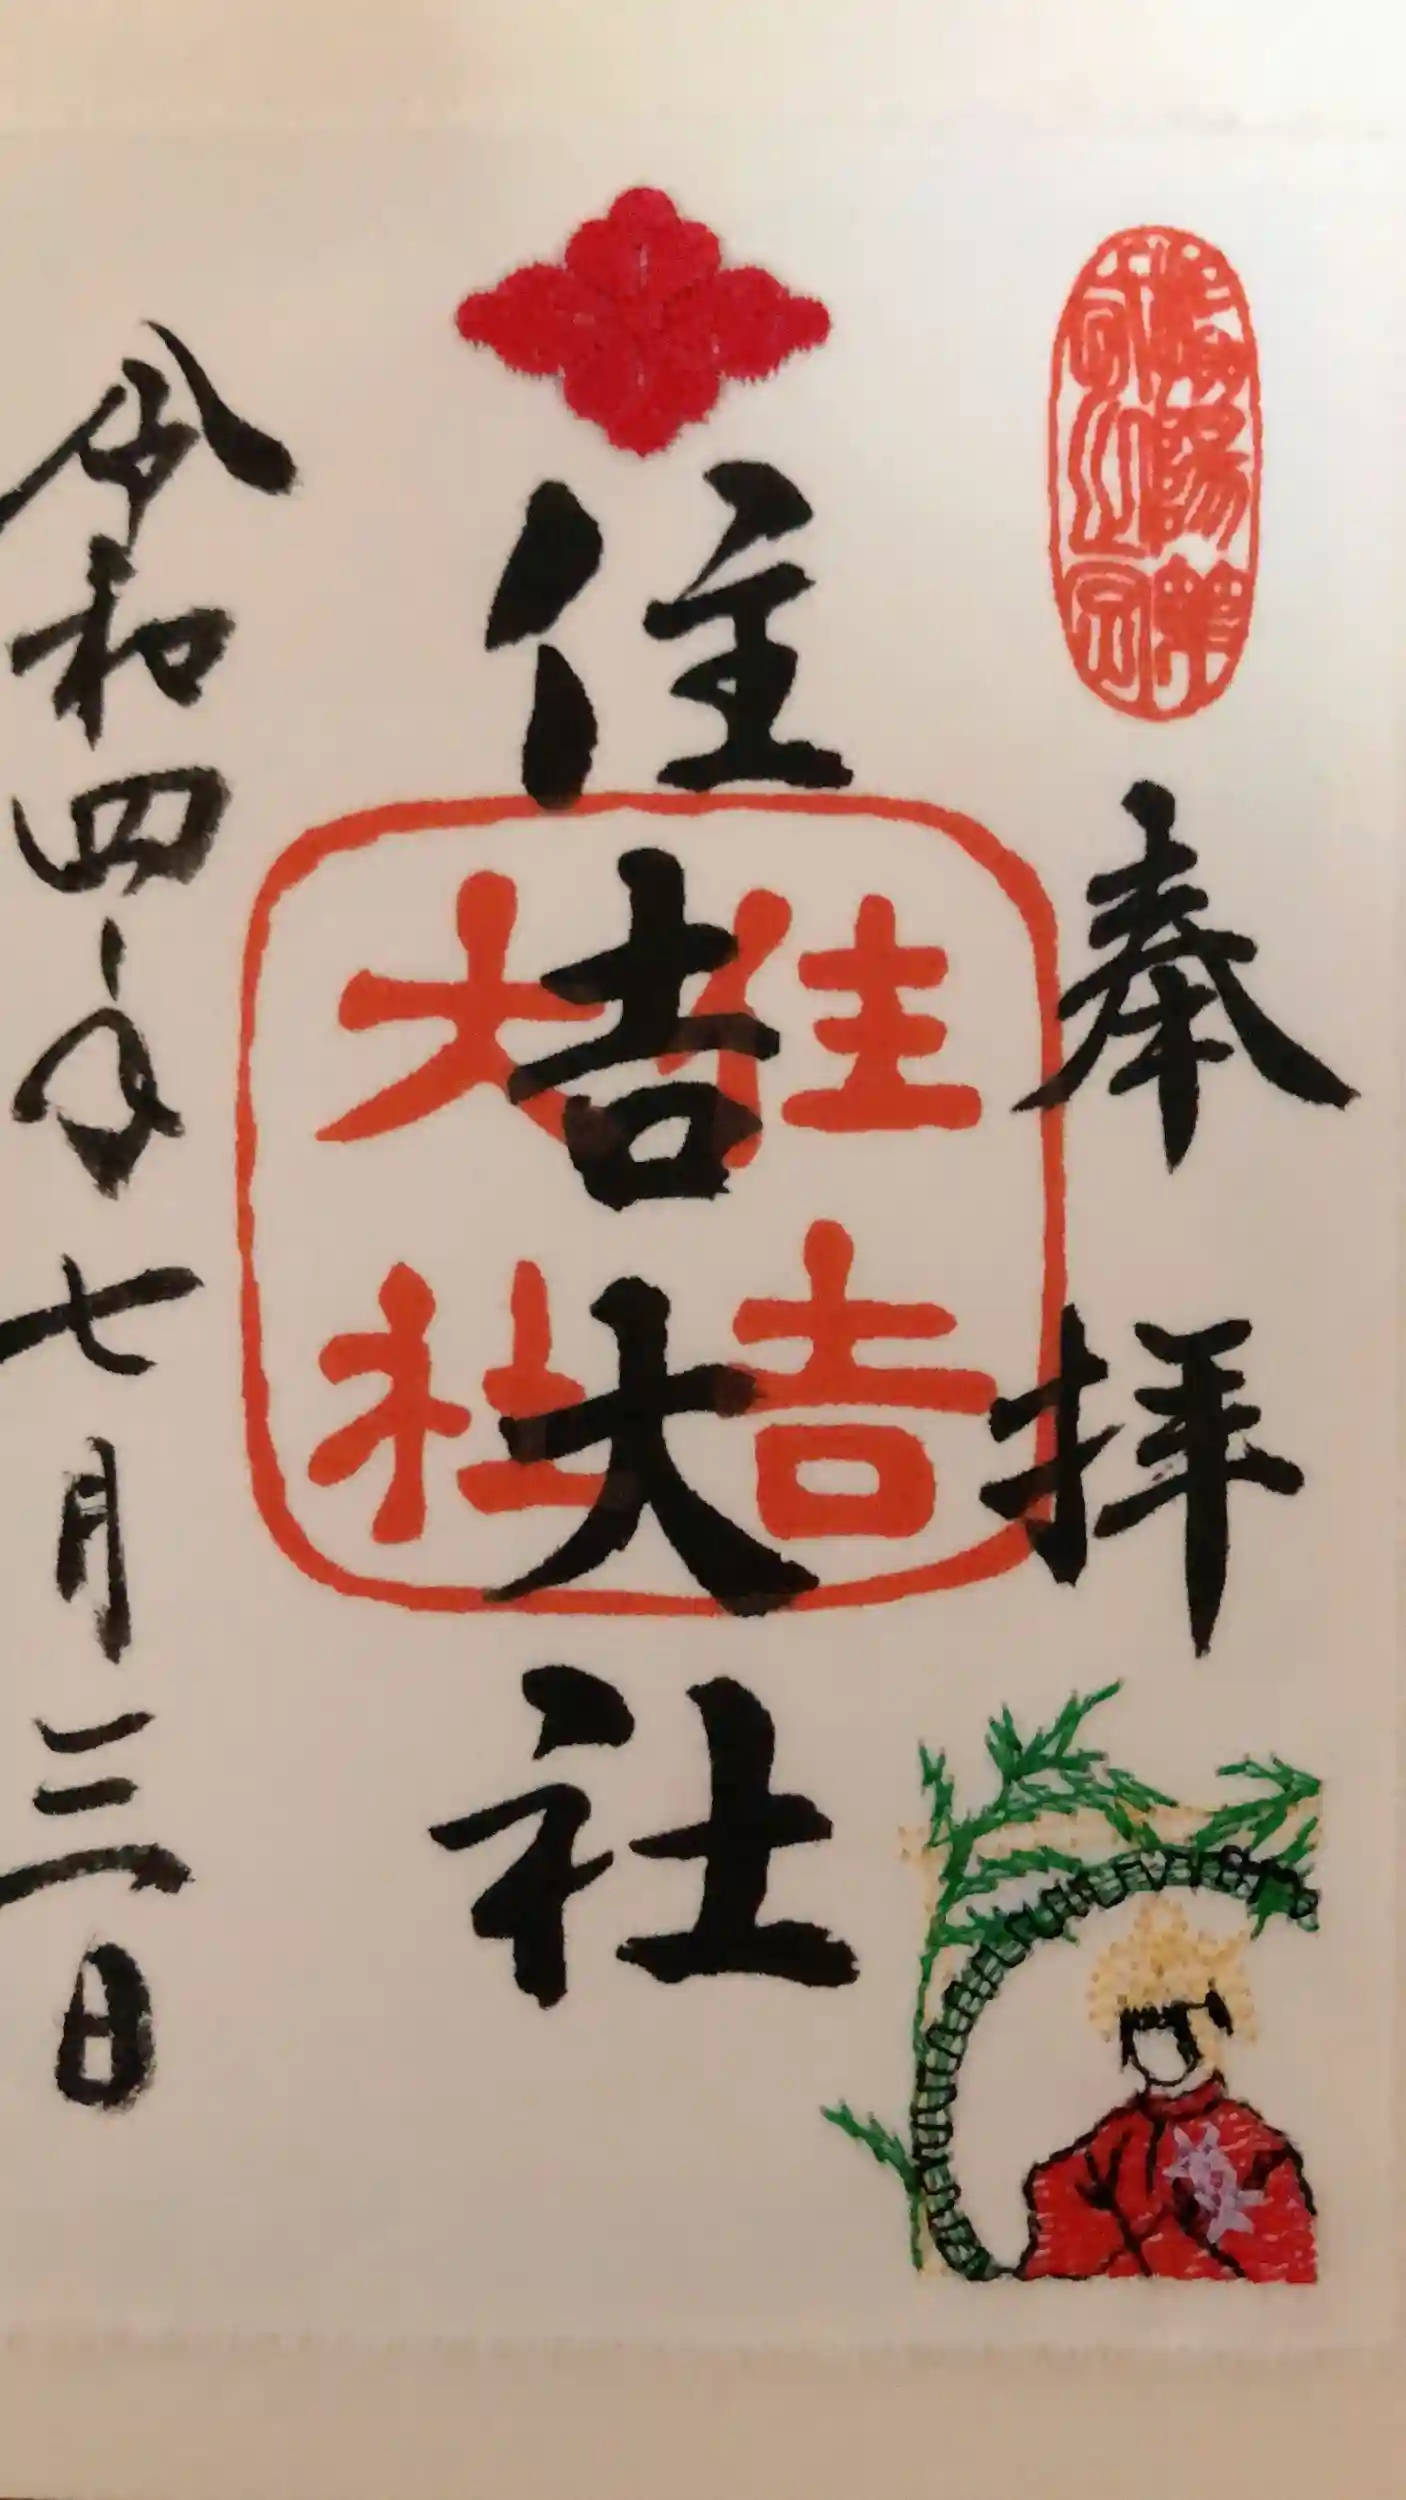 奉拝
住吉大社
住吉
大社
令和四年七月三日